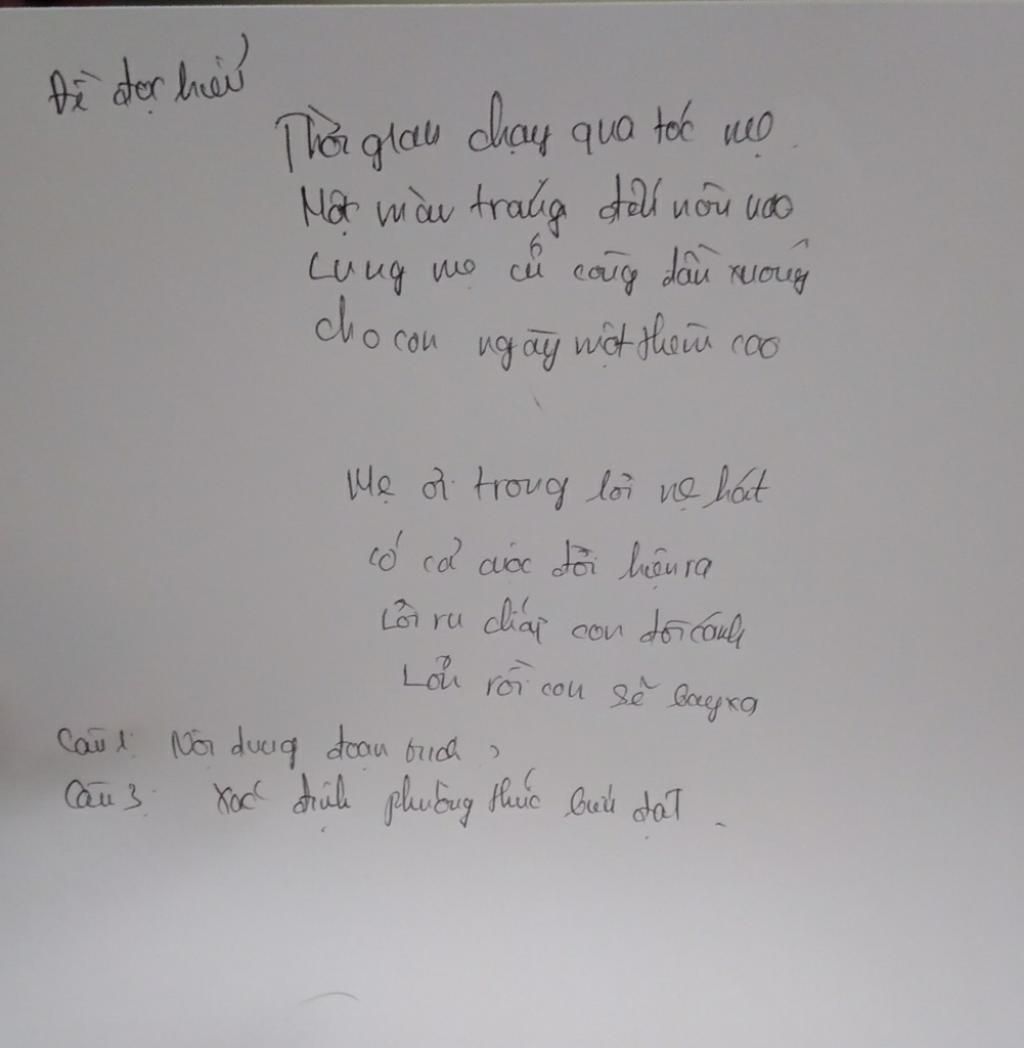 Đề đọc hiểu
Thời gian chạy qua tóc mẹ
Một màu trắng đến nôn nao
Lưng mẹ cứ còng dần xuống
cho con ngày một thêm cao
Mẹ ơi trong lời mẹ hát
có cả cuộc đời hiện ra
Lời ru chắp con đôi cánh
Lớn rồi con sẽ bay xa
Câu 1: Nội dung đoạn trích ?
Câu 3: Xác định phương thức biểu đạt.